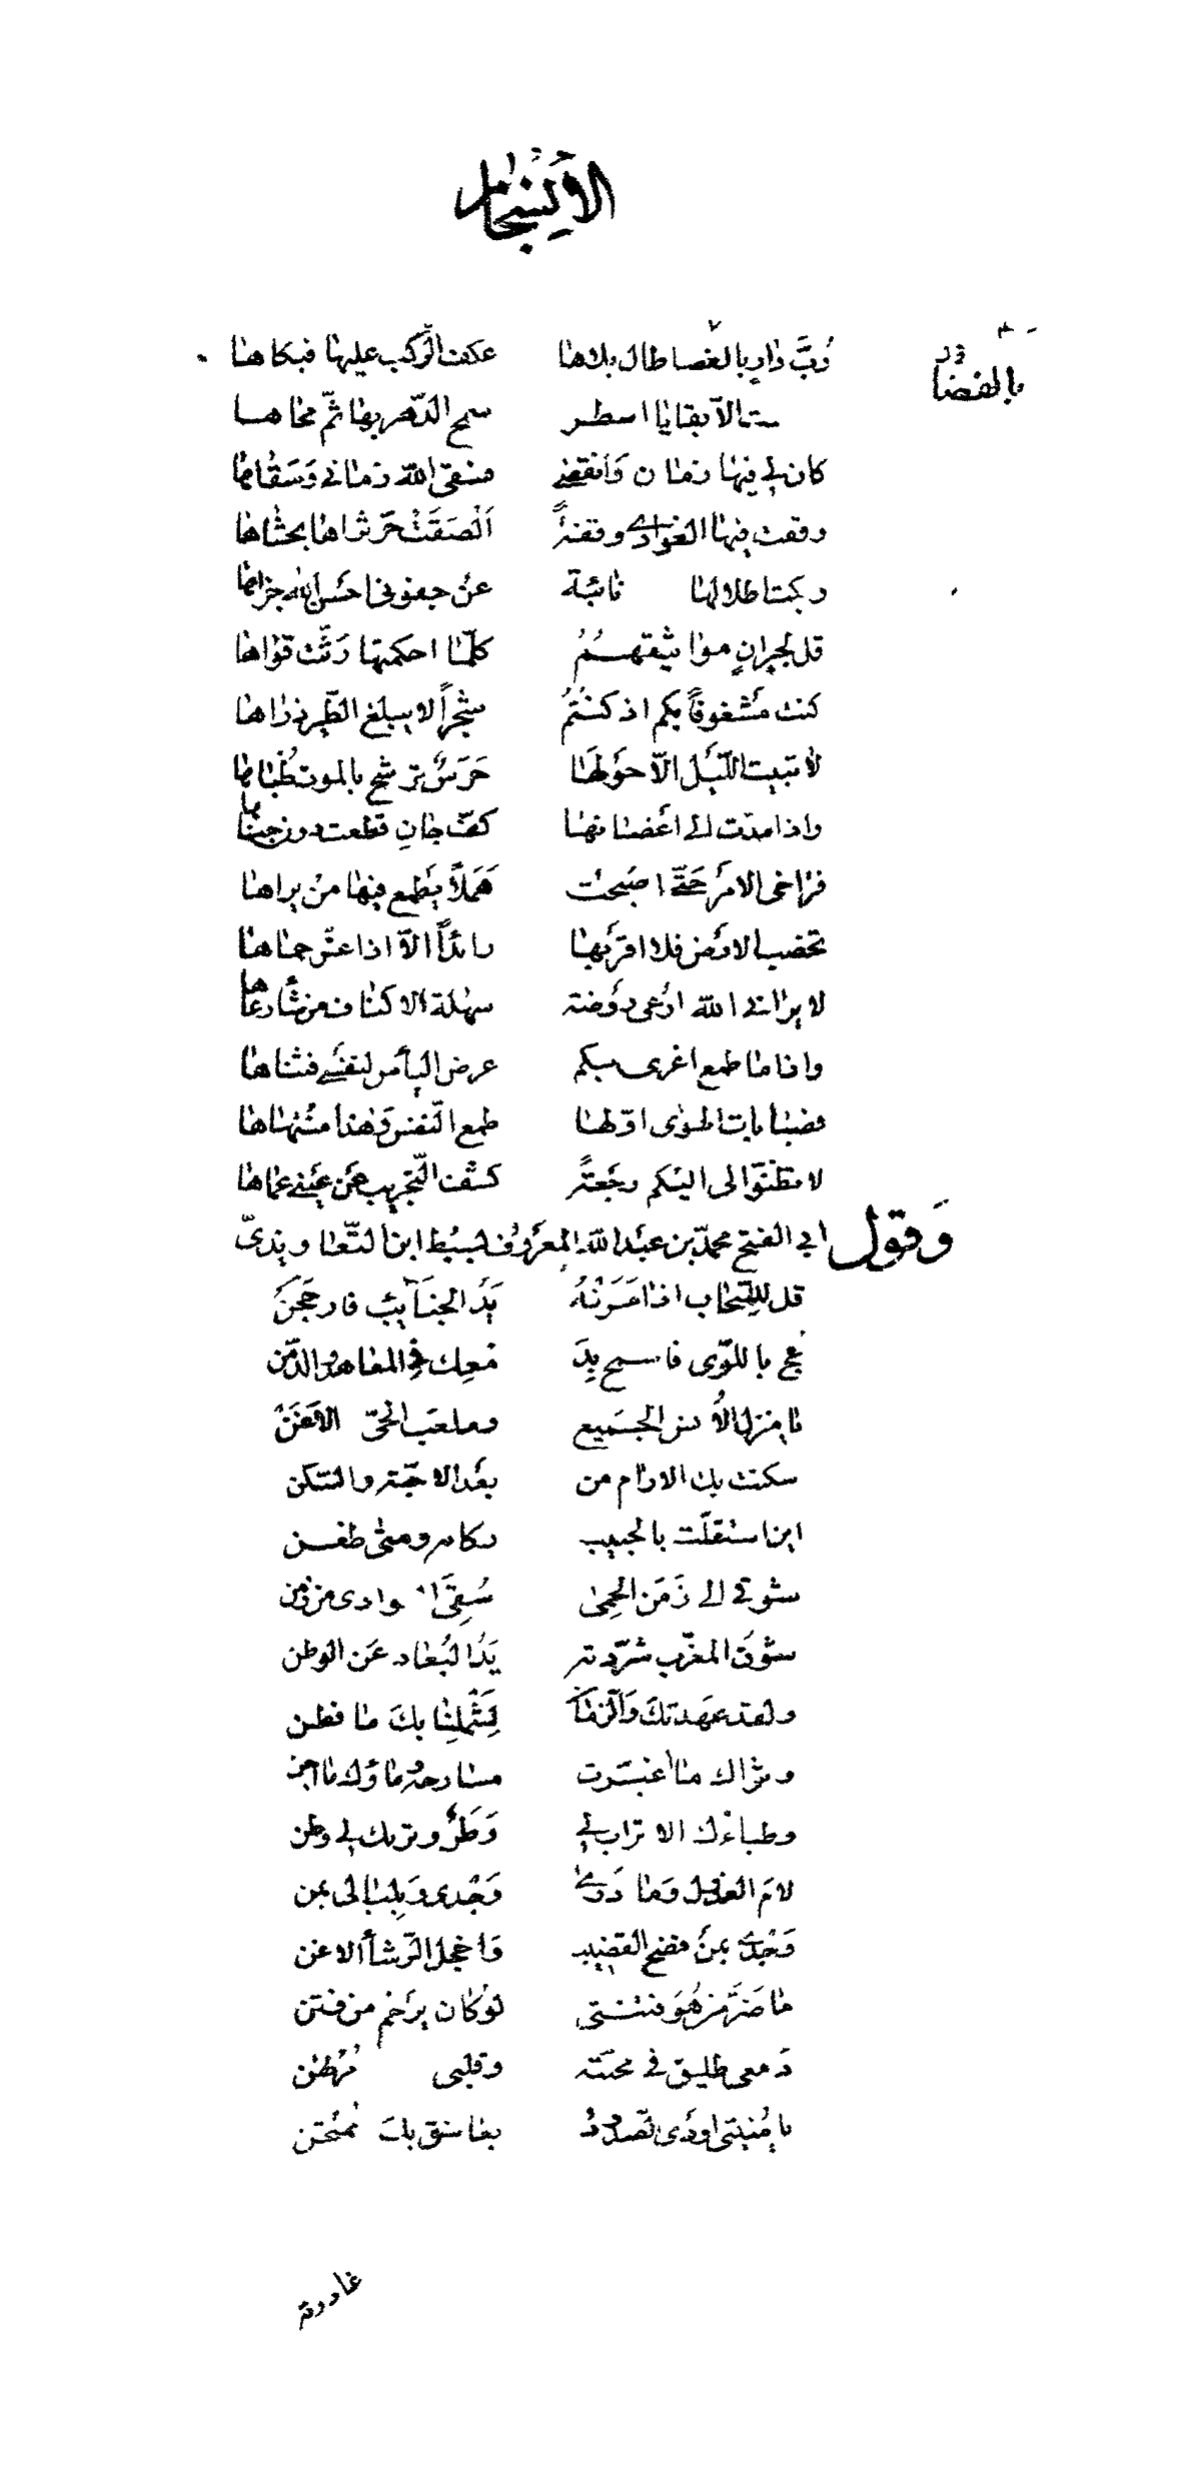 الانسجام
رُبَّ دارٍ بالغضا طال بلاها عكف الرّكب عليها فبكاها
بالغضا
الّا بقايا اسطر سمح الدّهر بها ثمّ محاها
كان لي فيها زمان وَانقضى فسقى اللّه زماني وَسَقاها
وقفت فيها الغوادي وقفةً اَلْصَقَتْ حرّ ثراها بحشاها
وبكت اطلالها نائبة عن جفوني احسن الله جزاها
قل لجيرانٍ مواثيقهمُ كلّما احكمتها رَثَّت قواها
كنت مشغوفاً بكم اذ كنتمُ شجراً لا يبلغ الطّير ذراها
لا تبيت اللّيل الّا حولها حَرَسٌ ترشح بالموت ظُباها
واذا مدّت الى اغصانها كفّ جانٍ قطعت دون جناها
فتراخى الامر حتّى اصبحت هَمَلاً يطمع فيها من يراها
تخصب الارض فلا اقربها رائداً الّا اذا عزّ حماها
لا يراني اللّه ارعى روضة سهلة الاكناف من شاء رعاها
واذا ما طمع اغرى بكم عرض اليأس لنفسي فثناها
فصبابات الهوى اوّلها طمع النّفس وَهذا منتهاها
لا تظنّوا لي اليكم رجعةً كشف التّجريب عن عيني عماها
وَقول ابي الفتح محمّد بن عبد اللّه المعروف بسبط ابن التّعاويذيّ
قل للسّحاب اذا مَرَتْهُ يَدُ الجنَائب فارجحن
عج باللّوى فاسمح بِدَ مْعِك في المعاهد والدّمن
يا منزل الاُنس الجميع وملعب الحيّ الاغنّ
سكنت بك الارام من بعد الاحبّة والسّكن
اين استقلّت بالحبيب ركابه ومتى ظعن
شوقي الى زَمَن الحِمى سُقِيَ الغوادي من زمن
شوق المغرّب شرّدته يَدُ البُعاد عن الوطن
ولقد عهدتك وَالزمان لِشملنا بك ما فطن
وثراك ما اغبرّت مسارحه وماؤك ما اجن
وظباءُك الاتراب لي وَطَرٌ وتربك لي وطن
لامَ العذول وَما دَرى وَجْدي وَبلبالي بمن
وَجْدي بمن فضح القضيب وَاخجل الرّشأ الاغن
ما ضرّ من هُوَ فتنتي لو كان يرحم من فتن
دَمعي طليق في محبّته وقلبي مرتهن
يا مُنيتي اودى الصّدودُ بعاشق بك ممتحن
غادرته